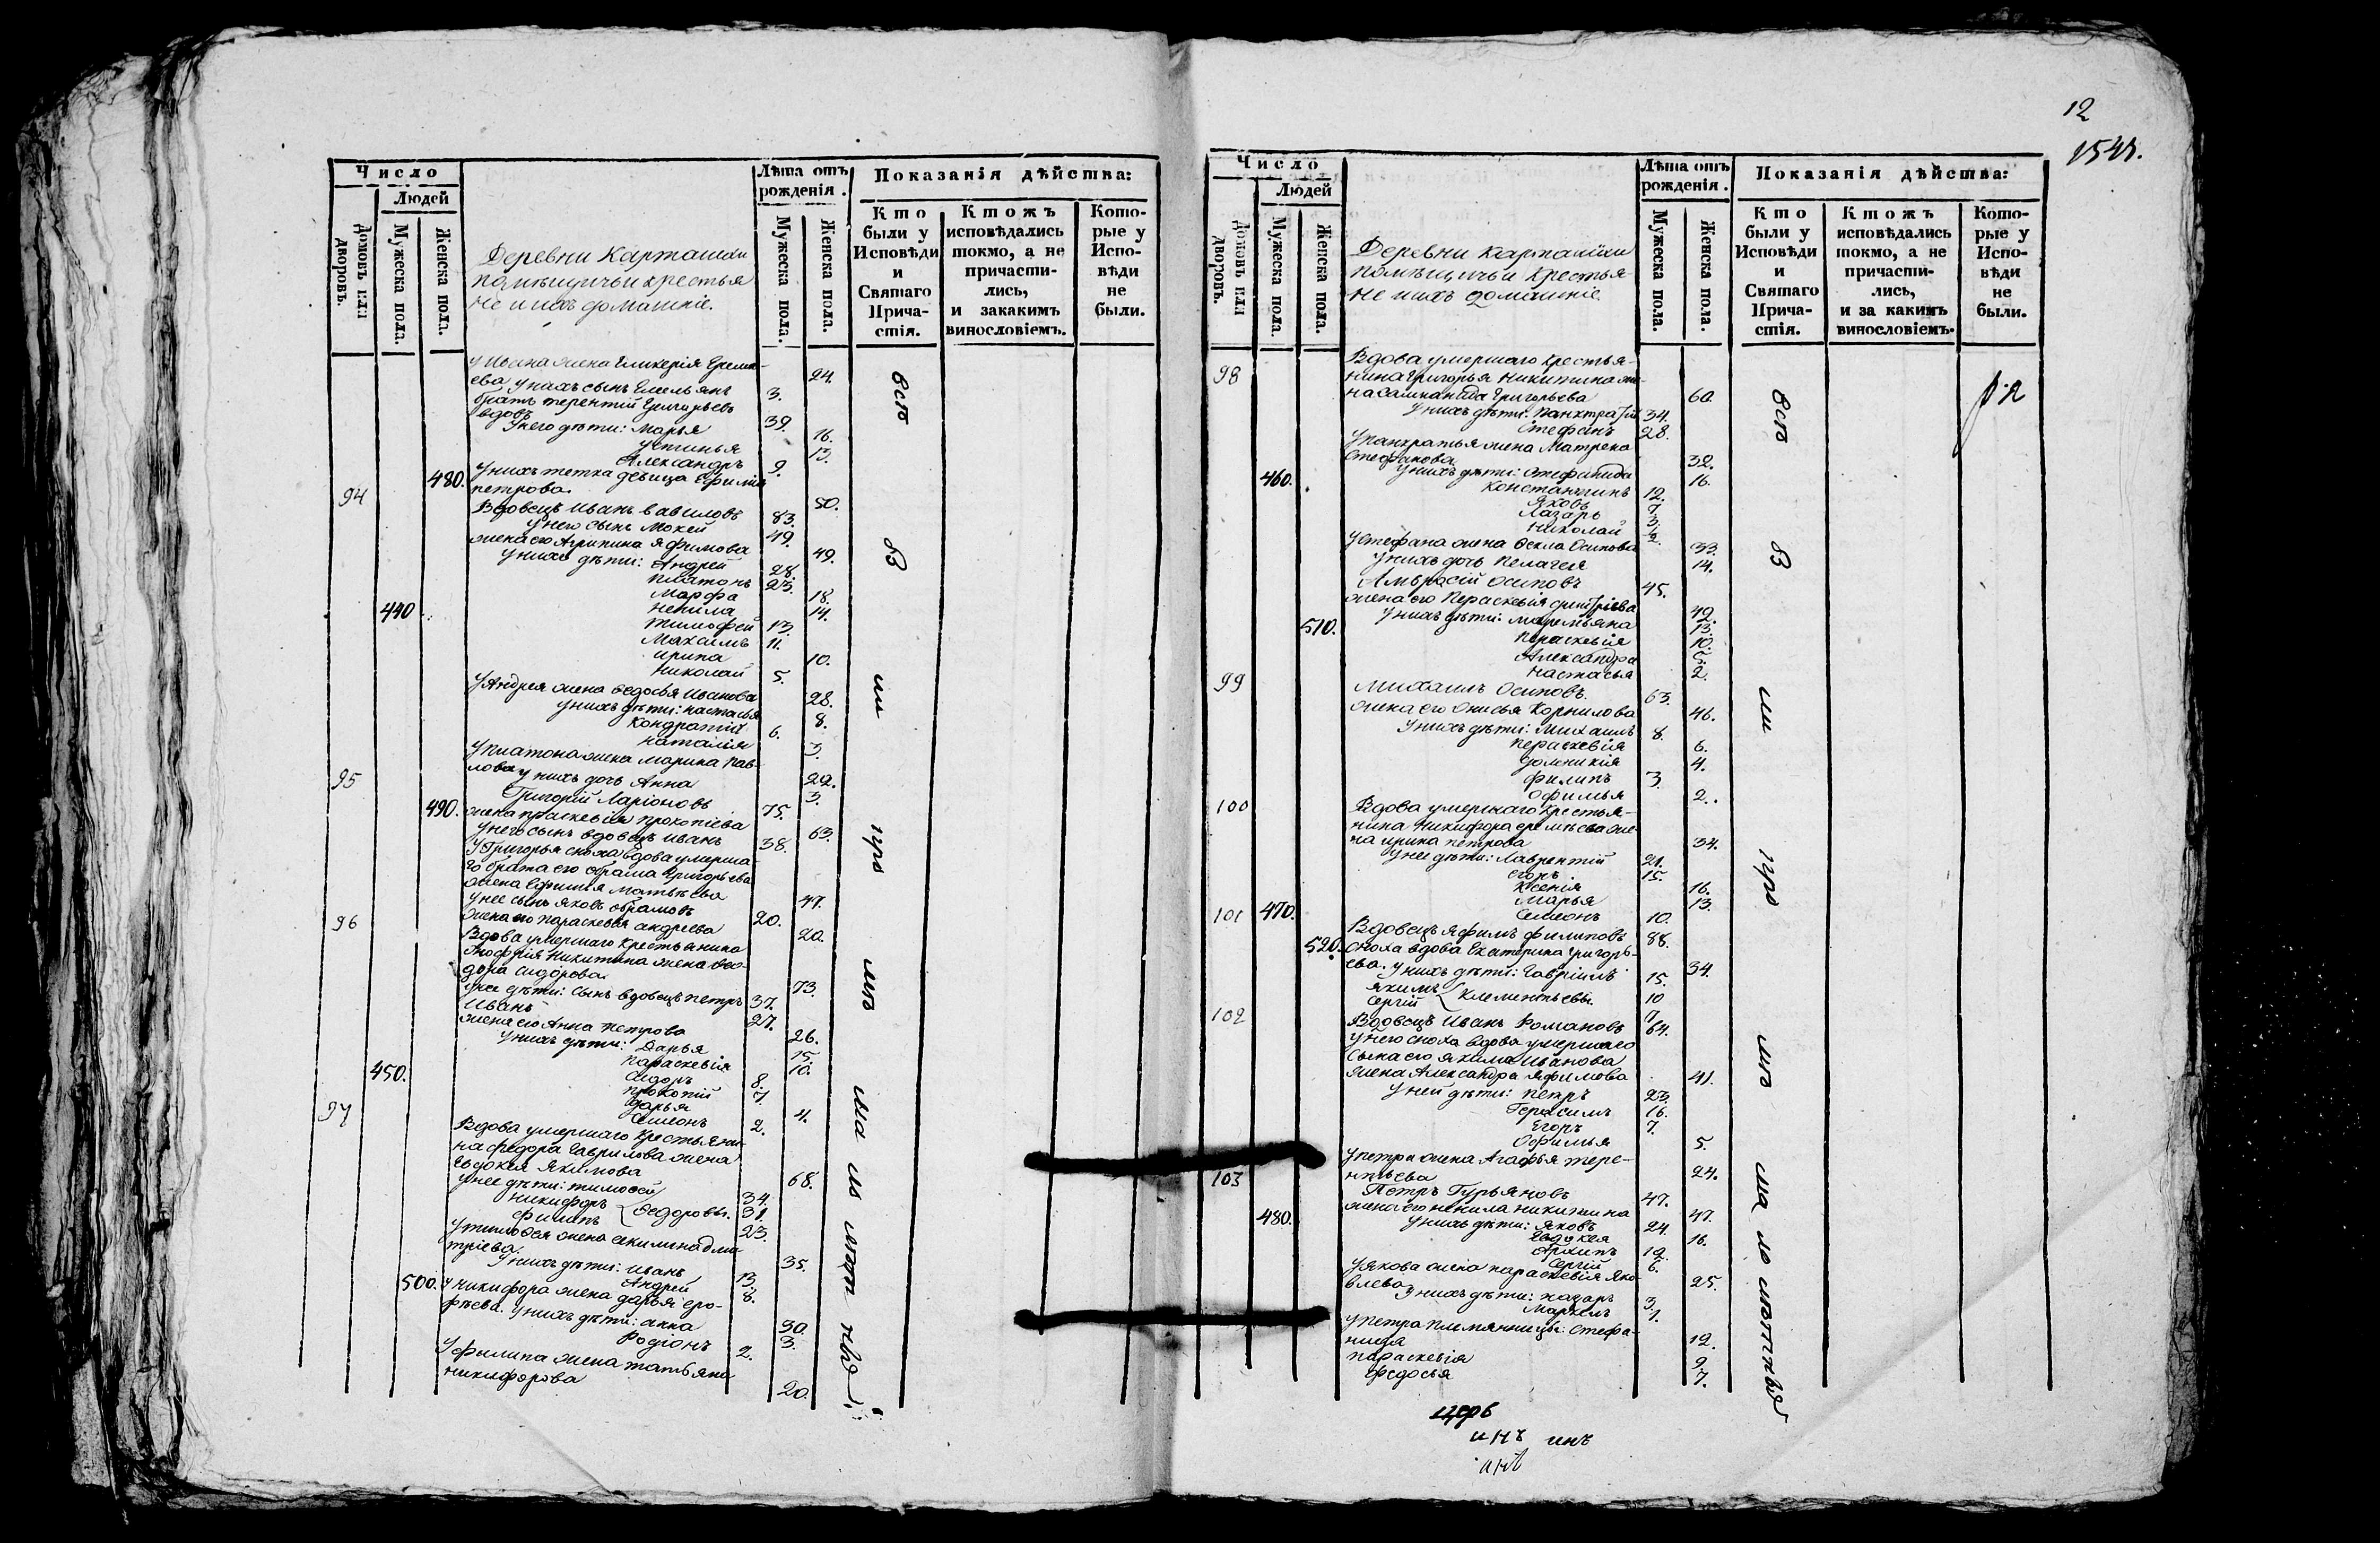 12
1541.
Число
Людей
Домовъ или дворовъ.
Мужеска пола.
Женска пола.
Деревни Карташихи
помѣщичьи крестья
не и ихъ домашніе.
Лѣта отъ рожденія.
Мужеска пола.
Женска пола.
Показанія дѣйства:
Кто были у Исповѣди и Святаго Причастія.
Ктожъ исповѣдались токмо, а не причастились, и закакимъ винословіемъ.
Которые у Исповѣди не были.
у Ивана жена Гликерія Ереме-
ева у нихъ сынъ Емельянъ 24. 3.
братъ терентій Григорьевъ
вдовъ 39.
У него дѣти: Марья 16.
Устинья 13.
Александръ 9.
480. У нихъ тетка дѣвица Ефимія
петрова. 50.
94 Вдовецъ Иванъ вавиловъ 83.
У него сынъ Мокей 49.
жена его Агрипина Яфимова 49.
У нихъ дѣти: Андрей 28.
Платонъ 23.
Марфа 18.
440 Ненила 14.
Тимофей 13.
Максимъ 11.
Ирина 10.
Николай 5.
У Андрея жена Федосья Иванова 28.
У нихъ дѣти: Настасья 8.
Кондратій 6.
Наталія 3.
У Платона жена Марина Пав-
лова у нихъ дочь Анна 22. 3.
95 Григорій Ларіоновъ 75.
490. жена праскевія прокопіева 63.
У него сынъ вдовецъ Иванъ 38.
У Григорья сноха вдова умерша-
го брата его абрама Григорьева
жена Ефимія Матвѣева 47.
У нее сынъ Яковъ абрамовъ 20.
жена его параскевія андреева 20.
96 Вдова умершаго крестьянина
Никитина жена Фео-
дора Сидорова 73.
У нее дѣти: сынъ вдовецъ петръ 37.
Иванъ 27.
жена его Анна петрова 26.
У нихъ дѣти: Дарья 15.
параскевія 10.
450. Сидоръ 8.
прокопій 7.
Дарья 4.
Семенъ 2.
97 Вдова умершаго крестьяни-
на федора Гаврилова жена
Евдокея Якимова 68.
У нее дѣти: тимофей 34.
Никифоръ 31. Федоровы.
Филипъ 23.
У тимофея жена акилина дми-
тріева. 35.
У нихъ дѣти: Иванъ 13.
Андрей 8.
500. У никифора жена дарья еро-
фѣева. У нихъ дѣти: анна 30. 3.
Родіонъ 2.
У филипа жена татьяна
никифорова 20.
всѣ
Число
Людей
Домовъ или дворовъ.
Мужеска пола.
Женска пола.
Деревни карташихи
помѣщичьи крестья-
не и ихъ домашніе.
Лѣта отъ рожденія.
Мужеска пола.
Женска пола.
Показанія дѣйства:
Кто были у Исповѣди и Святаго Причастія.
Ктожъ исповѣдались токмо, а не причастились, и за какимъ винословіемъ.
Которые у Исповѣди не были.
98 Вдова умершаго крестья-
нина Григорья Никитина же-
на Григорьева 60.
У нихъ дѣти: Панкратій 34.
Стефанъ 28.
У панкратья жена Матрена
Стефанова 32.
460. У нихъ дѣти: Стефанида 16.
Константинъ 12.
Яковъ 7.
Лазарь 3.
Николай 2.
У Стефана жена Фекла Осипова 33.
У нихъ дочь Пелагея 14.
Амвросій Осиповъ 45.
жена его Параскевія дмитріева 42.
510. У нихъ дѣти: Маремьяна 13.
Параскевія 10.
Александра 5.
Настасья 2.
99 Михаилъ Осиповъ. 63.
жена его Анисья Корнилова 46.
У нихъ дѣти: Михаилъ 8.
Параскевія 6.
Домникія 4.
Филипъ 3.
Офимья 2.
100 Вдова умершаго крестья-
нина Никифора еремѣева же-
на ирина петрова 34.
У нее дѣти: Лаврентій 21.
Егоръ 15.
Ксенія 16.
Марья 13.
470. Семіонъ 10.
101 Вдовецъ Яфимъ филиповъ 88.
520. Сноха вдова Екатерина Григорь-
ева. У нихъ дѣти: Гавріилъ 34. 15.
Якимъ 10
Сергій 7 Клементьевы.
102 Вдовецъ Иванъ Романовъ 64.
У него сноха вдова умершаго
сына его якима Иванова
жена Александра Яфимова 41.
У ней дѣти: Петръ 23.
Герасимъ 16.
Егоръ 7.
Офимья 5.
У петра жена Агафья тере-
нтьева 24.
103 Петръ Гурьяновъ 47.
жена его ненила никитина 47.
480. У нихъ дѣти: Яковъ 24.
Евдокея 16.
Архипъ 12.
Сергій 6.
У якова жена параскевія Яко-
влева 25.
У нихъ дѣти: назаръ 3.
Маркелъ 1.
У петра племянницы: Стефа-
нида 12.
параскевія 9.
Федосья 7.
всѣ
церь
инъ инъ